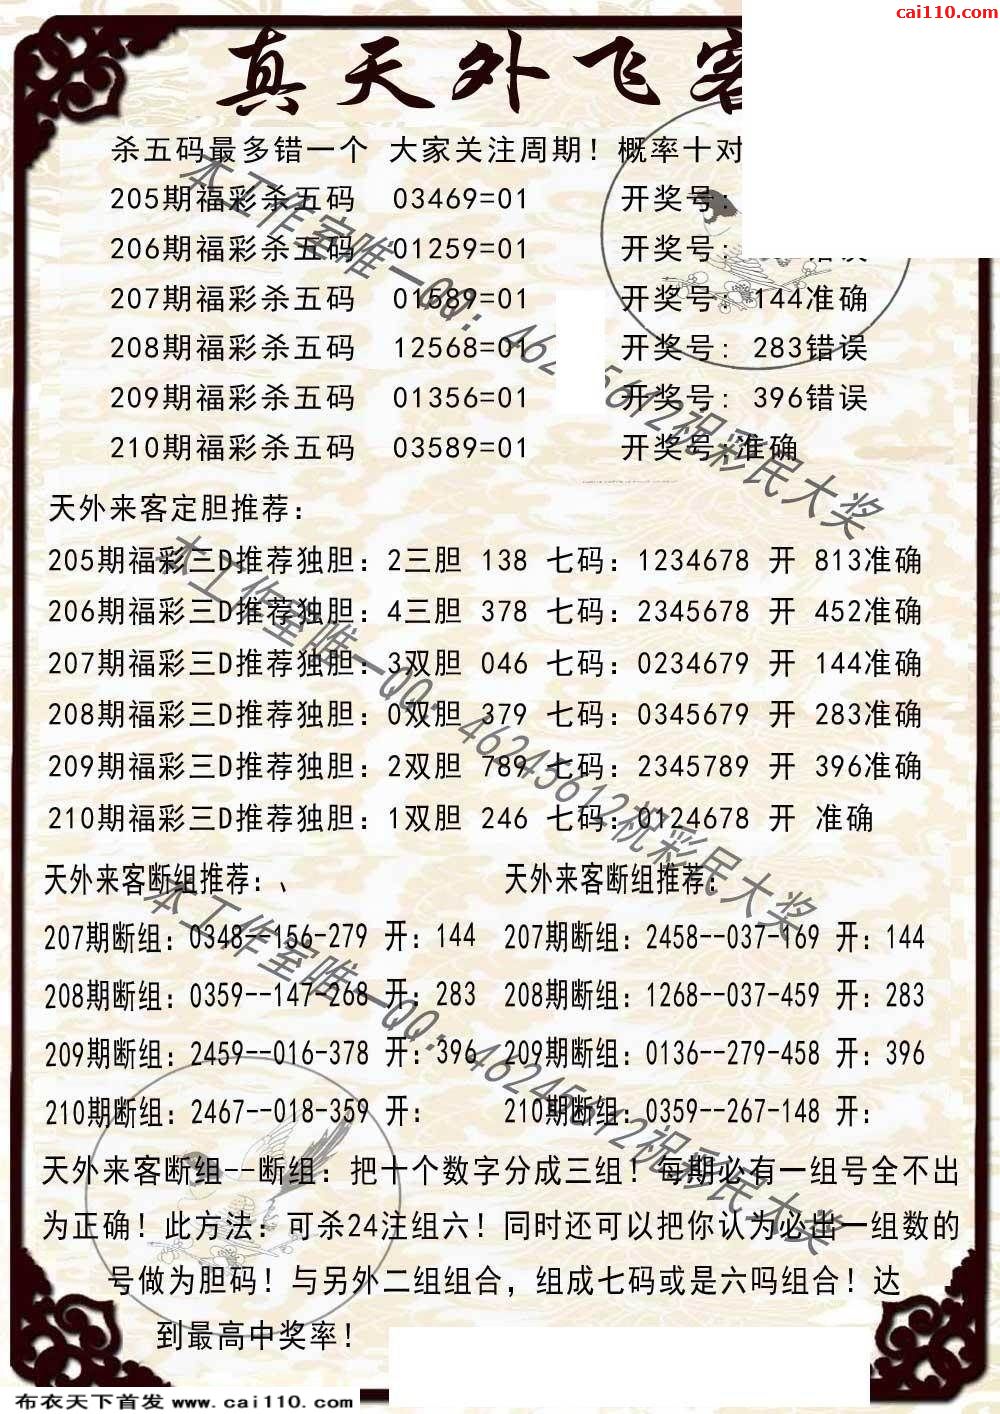 cai110.com
真天外飞客
杀五码最多错一个 大家关注周期！概率十对
205期福彩杀五码 03469=01 开奖号:
206期福彩杀五码 01259=01 开奖号: 错误
207期福彩杀五码 01589=01 开奖号: 144准确
208期福彩杀五码 12568=01 开奖号: 283错误
209期福彩杀五码 01356=01 开奖号: 396错误
210期福彩杀五码 03589=01 开奖号:准确
天外来客定胆推荐:
205期福彩三D推荐独胆: 2三胆 138 七码: 1234678 开 813准确
206期福彩三D推荐独胆: 4三胆 378 七码: 2345678 开 452准确
207期福彩三D推荐独胆: 3双胆 046 七码: 0234679 开 144准确
208期福彩三D推荐独胆: 0双胆 379 七码: 0345679 开 283准确
209期福彩三D推荐独胆: 2双胆 789 七码: 2345789 开 396准确
210期福彩三D推荐独胆: 1双胆 246 七码: 0124678 开 准确
天外来客断组推荐: 、 天外来客断组推荐:
207期断组: 0348--156-279 开: 144 207期断组: 2458--037-169 开: 144
208期断组: 0359--147-268 开: 283 208期断组: 1268--037-459 开: 283
209期断组: 2459--016-378 开: 396 209期断组: 0136--279-458 开: 396
210期断组: 2467--018-359 开: 210期断组: 0359--267-148 开:
天外来客断组--断组: 把十个数字分成三组！每期必有一组号全不出
为正确！此方法: 可杀24注组六！同时还可以把你认为必出一组数的
号做为胆码！与另外二组组合，组成七码或是六吗组合！达
到最高中奖率！
本工作室唯一QQ: 46245612祝彩民大奖
本工作室唯一QQ: 46245612祝彩民大奖
本工作室唯一QQ: 46245612祝彩民大奖
布衣天下首发 www.cai110.com